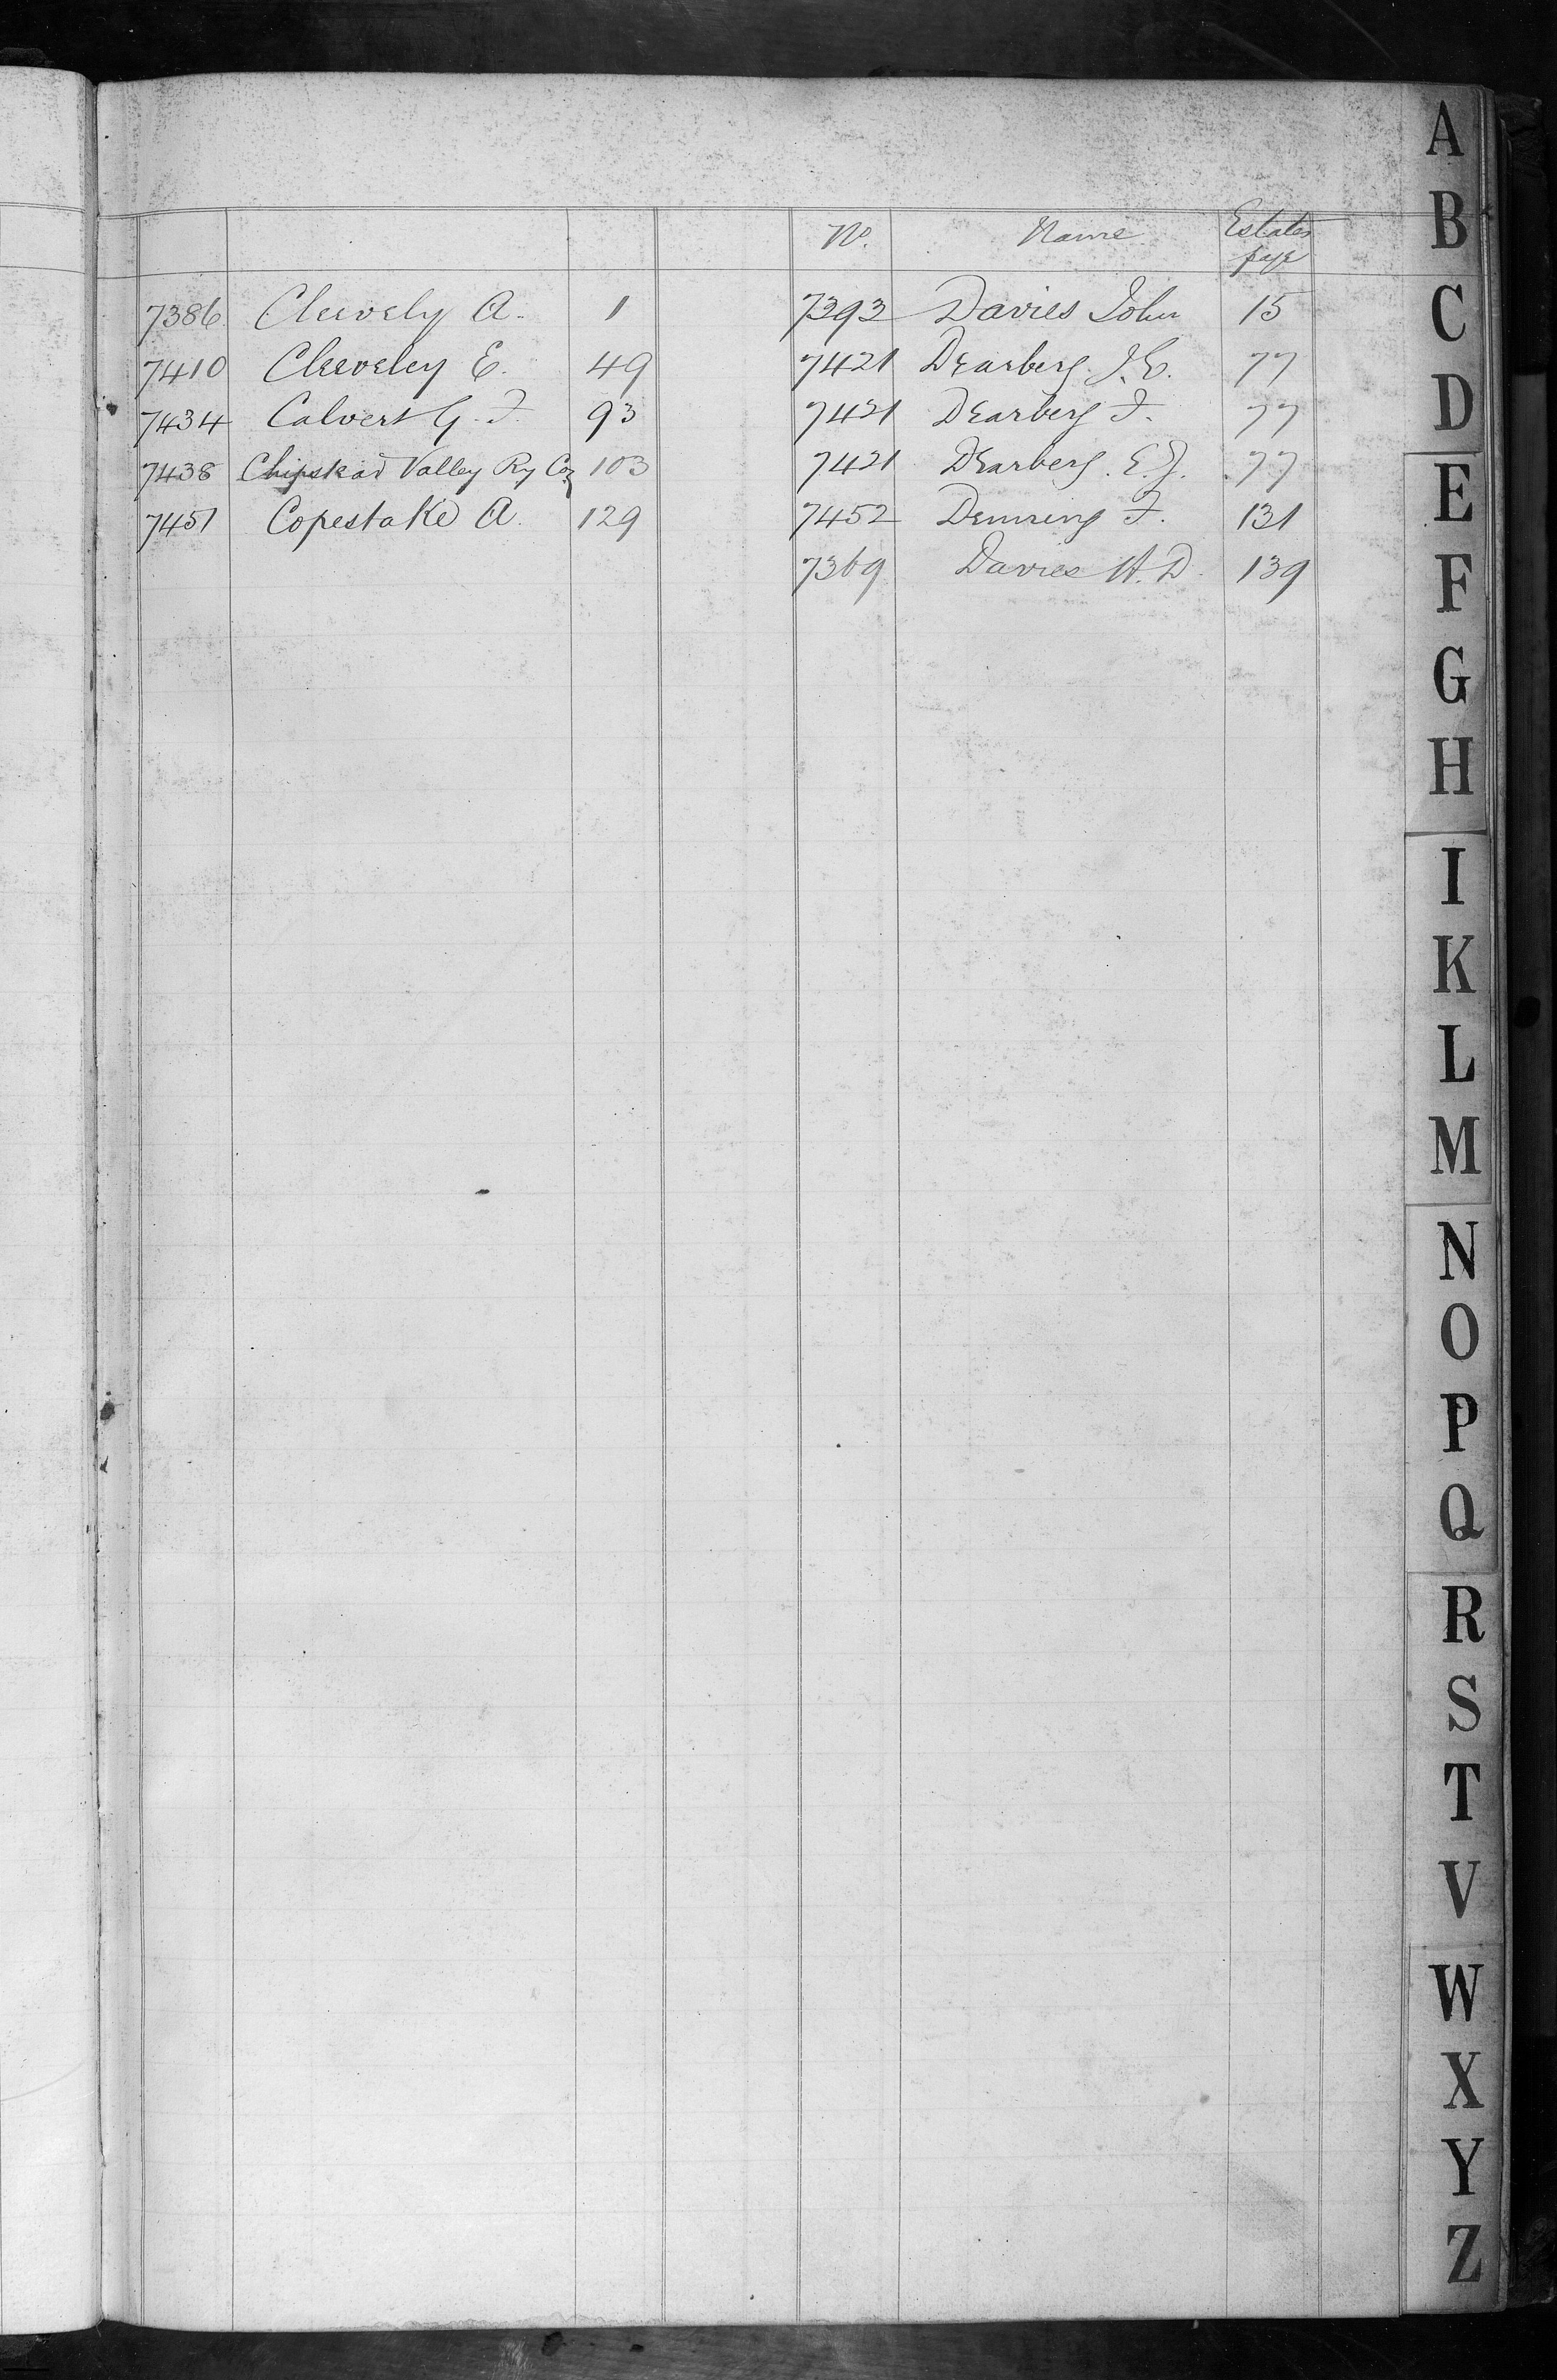 No. Name Estates page
7386 Cleevely A. 1
7410 Cleeveley E. 49
7434 Calvert G. F. 93
7438 Chipstead Valley Ry Coy 103
7451 Copestake A. 129
7393 Davies John 15
7421 Dearberg J. E. 77
7421 Dearberg F. 77
7421 Dearberg. E. J. 77
7452 F. 131
7369 Davies H. D. 139
A
B
C
D
E
F
G
H
I
K
L
M
N
O
P
Q
R
S
T
V
W
X
Y
Z